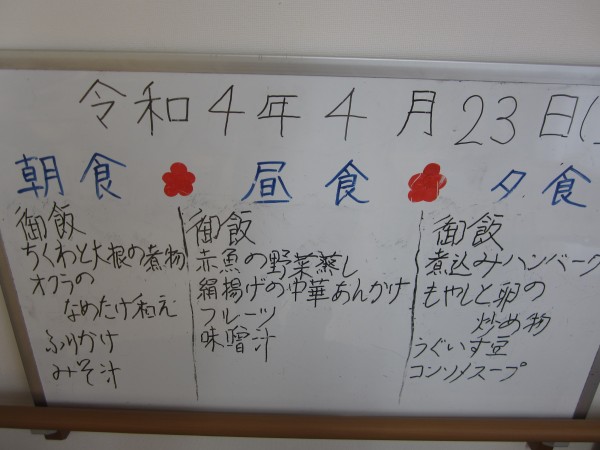 令和4年4月23日(
朝食
御飯
ちくわと大根の煮物
オクラの
なめたけ和え
ふりかけ
みそ汁
昼食
御飯
赤魚の野菜蒸し
絹揚げの中華あんかけ
フルーツ
味噌汁
夕食
御飯
煮込みハンバーグ
もやしと卵の
炒め物
うぐいす豆
コンソメスープ